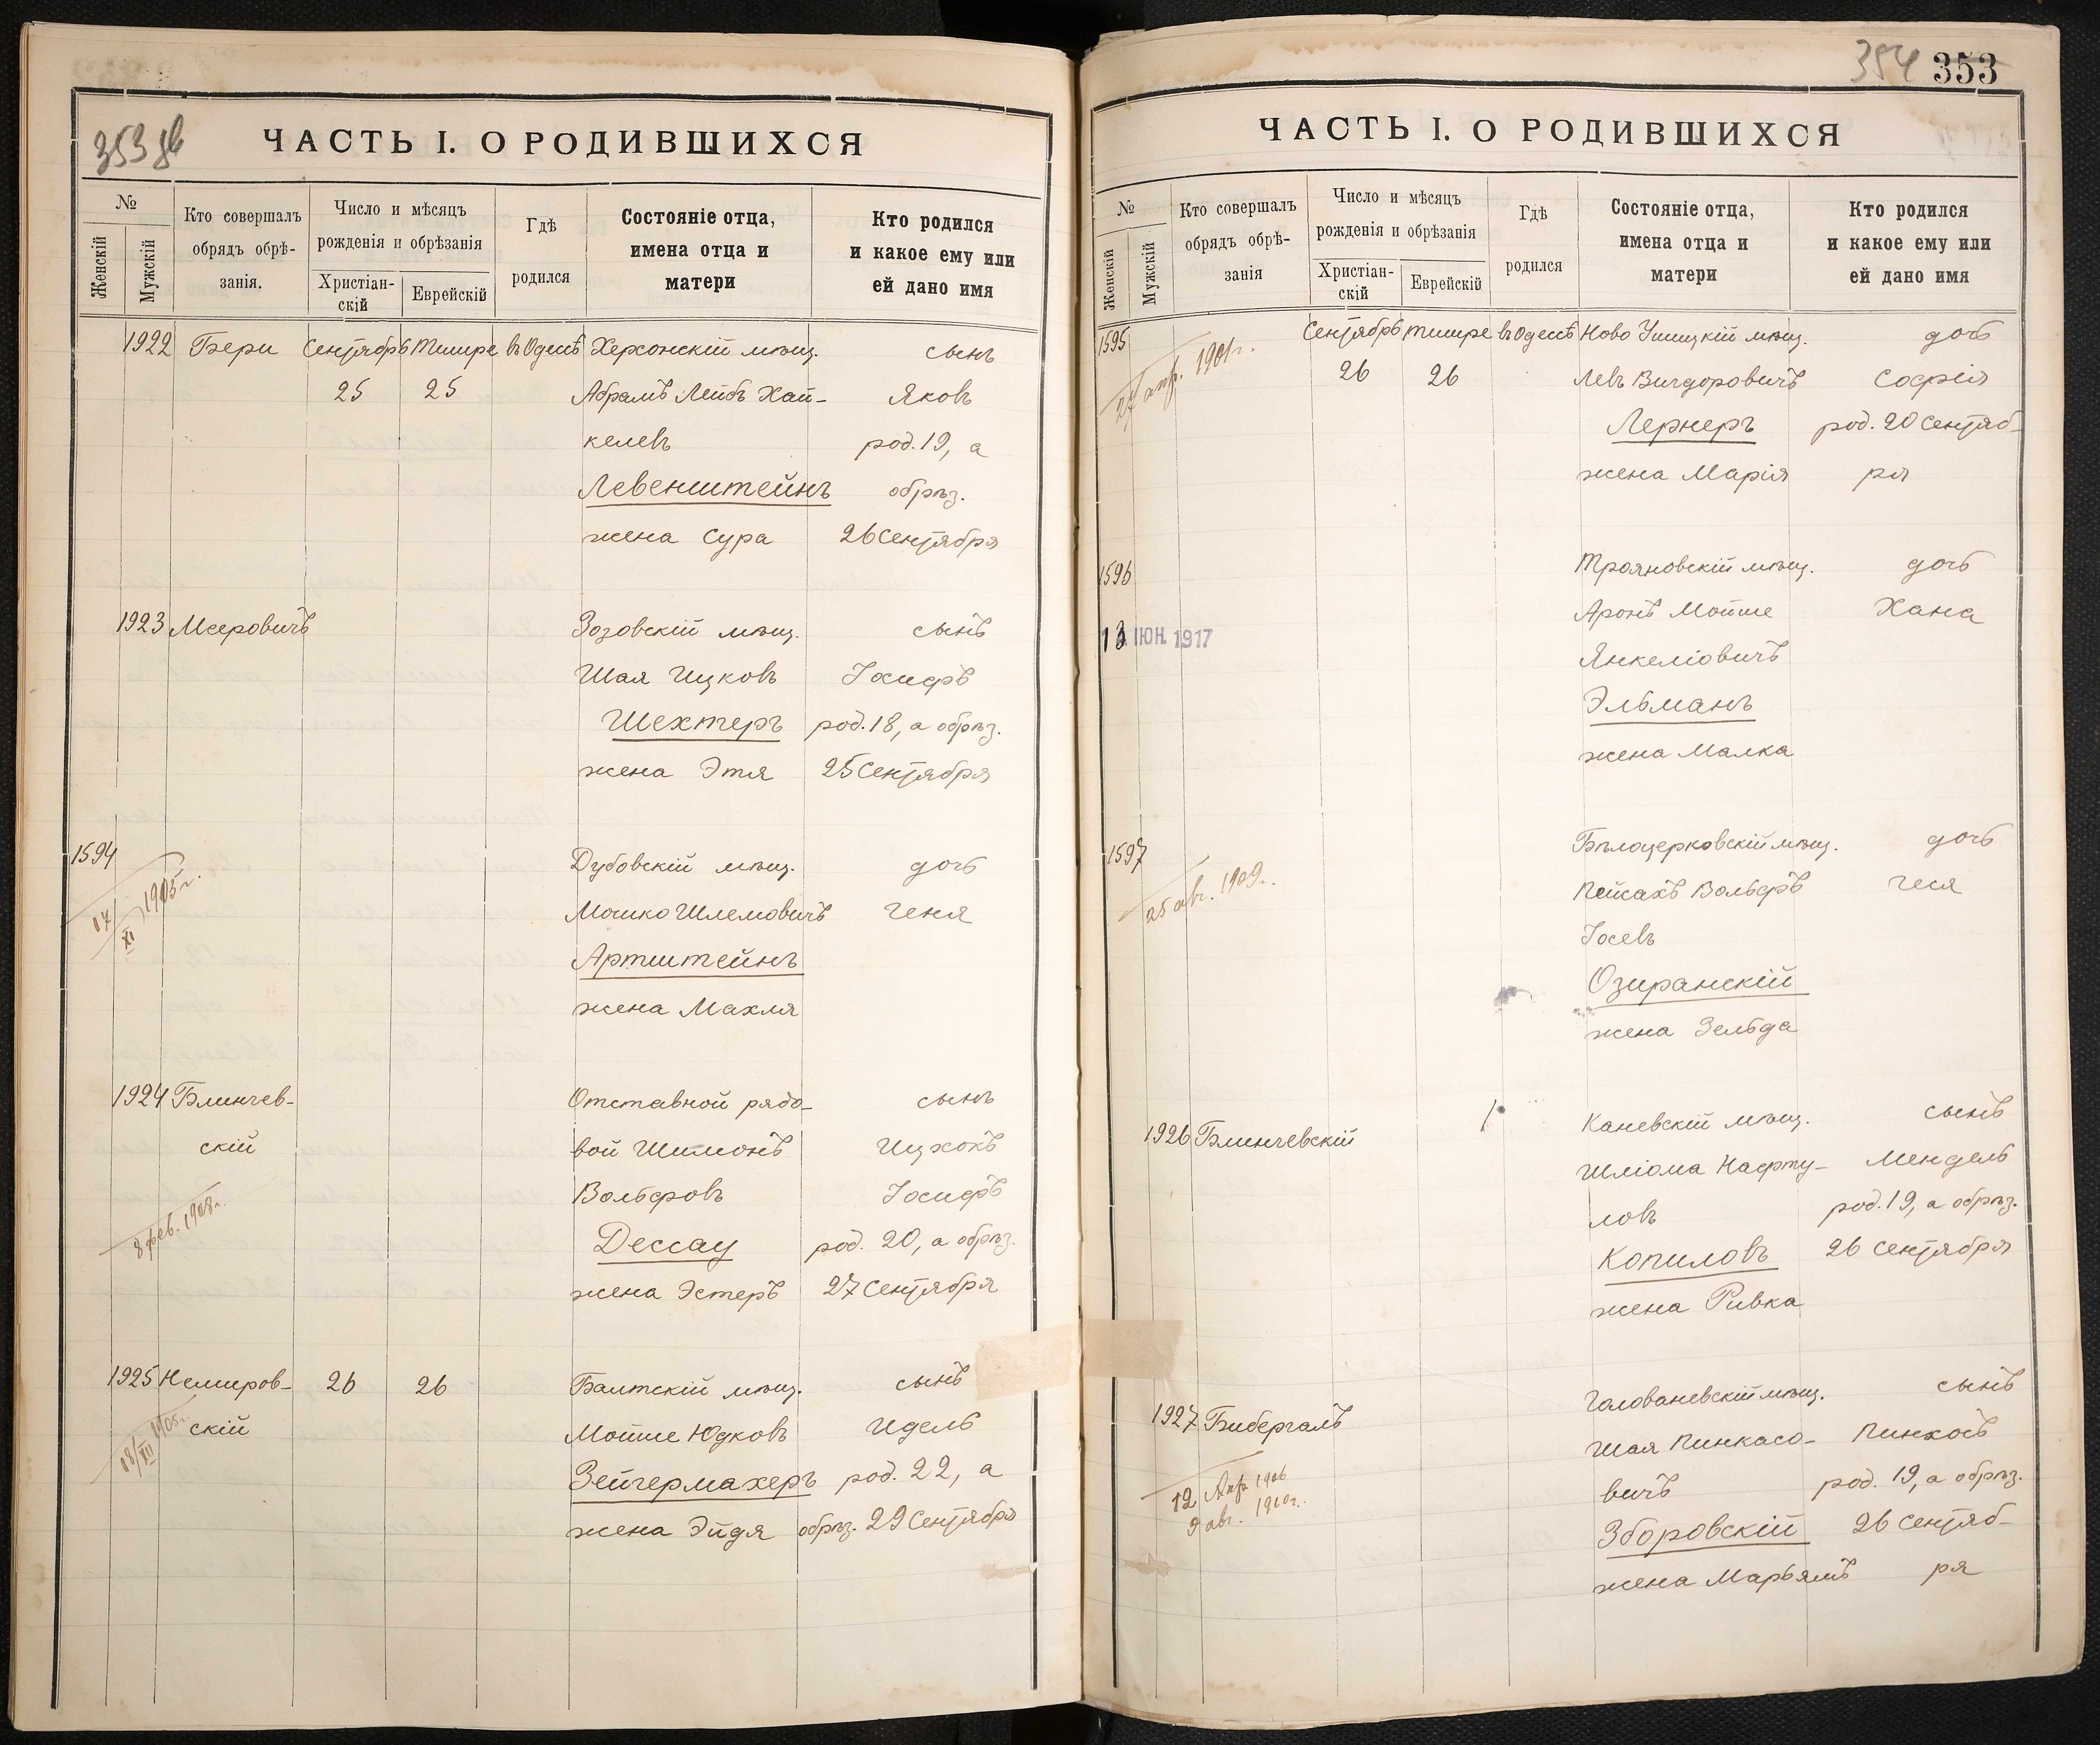 353 об
ЧАСТЬ I. О РОДИВШИХСЯ
№
Женскій
Мужскій
Кто совершалъ
обрядъ обрѣ-
занія.
Число и мѣсяцъ
рожденія и обрѣзанія
Христіан-
скій
Еврейскій
Гдѣ
родился
Состояніе отца,
имена отца и
матери
Кто родился
и какое ему или
ей дано имя
1922 Бери Сентябрь Тишре въ Одессѣ Херсонскій мѣщ. сынъ
25 25 Абрамъ Лейбъ Хай- Яковъ
келевъ род. 19, а
Левенштейнъ обрѣз.
жена Сура 26 Сентября
1923 Мееровичъ Зозовскій мѣщ. сынъ
Шая Ицковъ Іосифъ
Шехтеръ род. 18, а обрѣз.
жена Этя 25 Сентября
1594 Дубовскій мѣщ. дочь
17/XI 1905 г. Мошко Шлемовичъ Геня
Артштейнъ
жена Махля
1924 Блинчев- Отставной рядо- сынъ
скій вой Шимонъ Ицхокъ
Вольфовъ Іосифъ
8 фев. 1908 г. Дессау род. 20, а обрѣз.
жена Эстеръ 27 Сентября
1925 Немиров- 26 26 Балтскій мѣщ. сынъ
18/XII 1905 г. скій Мойше Юдковъ Идель
Зейгермахеръ род. 22, а
жена Эйдя обрѣз. 29 Сентября
354 353
ЧАСТЬ I. О РОДИВШИХСЯ
№
Женскій
Мужскій
Кто совершалъ
обрядъ обрѣ-
занія
Число и мѣсяцъ
рожденія и обрѣзанія
Христіан-
скій
Еврейскій
Гдѣ
родился
Состояніе отца,
имена отца и
матери
Кто родился
и какое ему или
ей дано имя
1595 Сентябрь Тишре въ Одессѣ Ново Ушицкій мѣщ. дочь
27 апр. 1901 г. 26 26 Левъ Вигдоровичъ Софія
Лернеръ род. 20 Сентяб-
жена Марія ря
1596 Трояновскій мѣщ. дочь
13 ІЮН. 1917 Аронъ Мойше Хана
Янкеліовичъ
Эльманъ
жена Малка
1597 Бѣлоцерковскій мѣщ. дочь
25 авг. 1909 г. Пейсахъ Вольфъ Геся
Іосевъ
Озиранскій
жена Зельда
1926 Блинчевскій Каневскій мѣщ. сынъ
Шліома Нафту- Мендель
ловъ род. 19, а обрѣз.
Копиловъ 26 Сентября
жена Ривка
1927 Бибергалъ Голованевскій мѣщ. сынъ
Шая Пинкасо- Пинхосъ
12 Апр 1906 вичъ род. 19, а обрѣз.
9 авг. 1910 г. Зборовскій 26 Сентяб-
жена Марьямъ ря